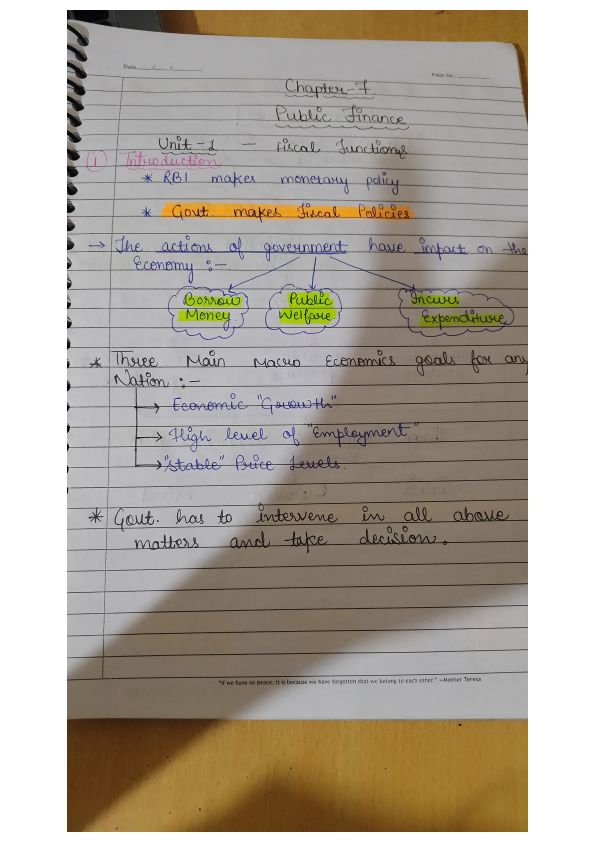 Date ___/___/______
Page No. ________
Chapter-7
Public Finance
Unit-1 — Fiscal Functions
1 Introduction
* RBI makes monetary policy
* Govt. makes Fiscal Policies
→ The actions of government have impact on the
Economy :-
Borrow Public Incurs
Money Welfare Expenditure
* Three Main Macro Economics goals for any
Nation :-
→ Economic "Growth"
→ High level of "Employment"
→ "Stable" Price Levels.
* Govt. has to intervene in all above
matters and take decision.
"If we have no peace, it is because we have forgotten that we belong to each other." ~Mother Teresa